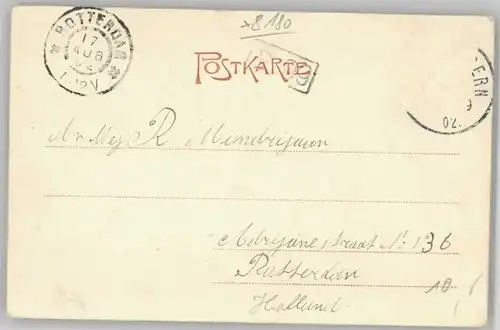 x8180
ROTTERDAM
17
AUG
POSTKARTE
ERN
An Mej R Mendrijaan
Adrijane straat No 136
Rotterdam
Holland